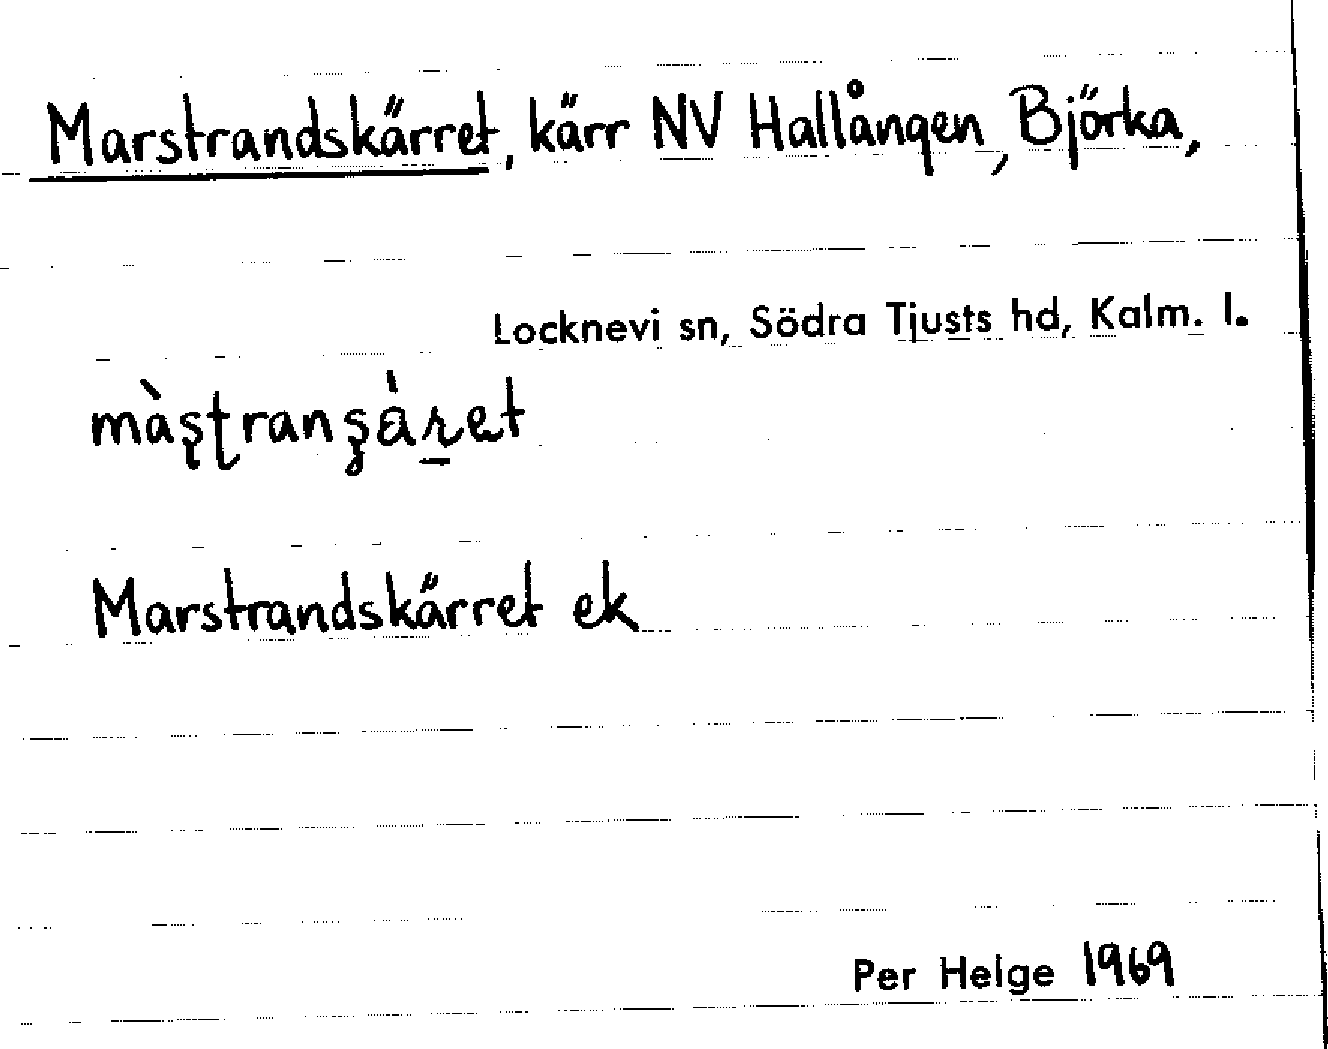 Marstrandskärret, kärr NV Hallången, Björka,
Locknevi sn, Södra Tjusts hd, Kalm. l.
Marstrandskärret ek
Per Helge 1969